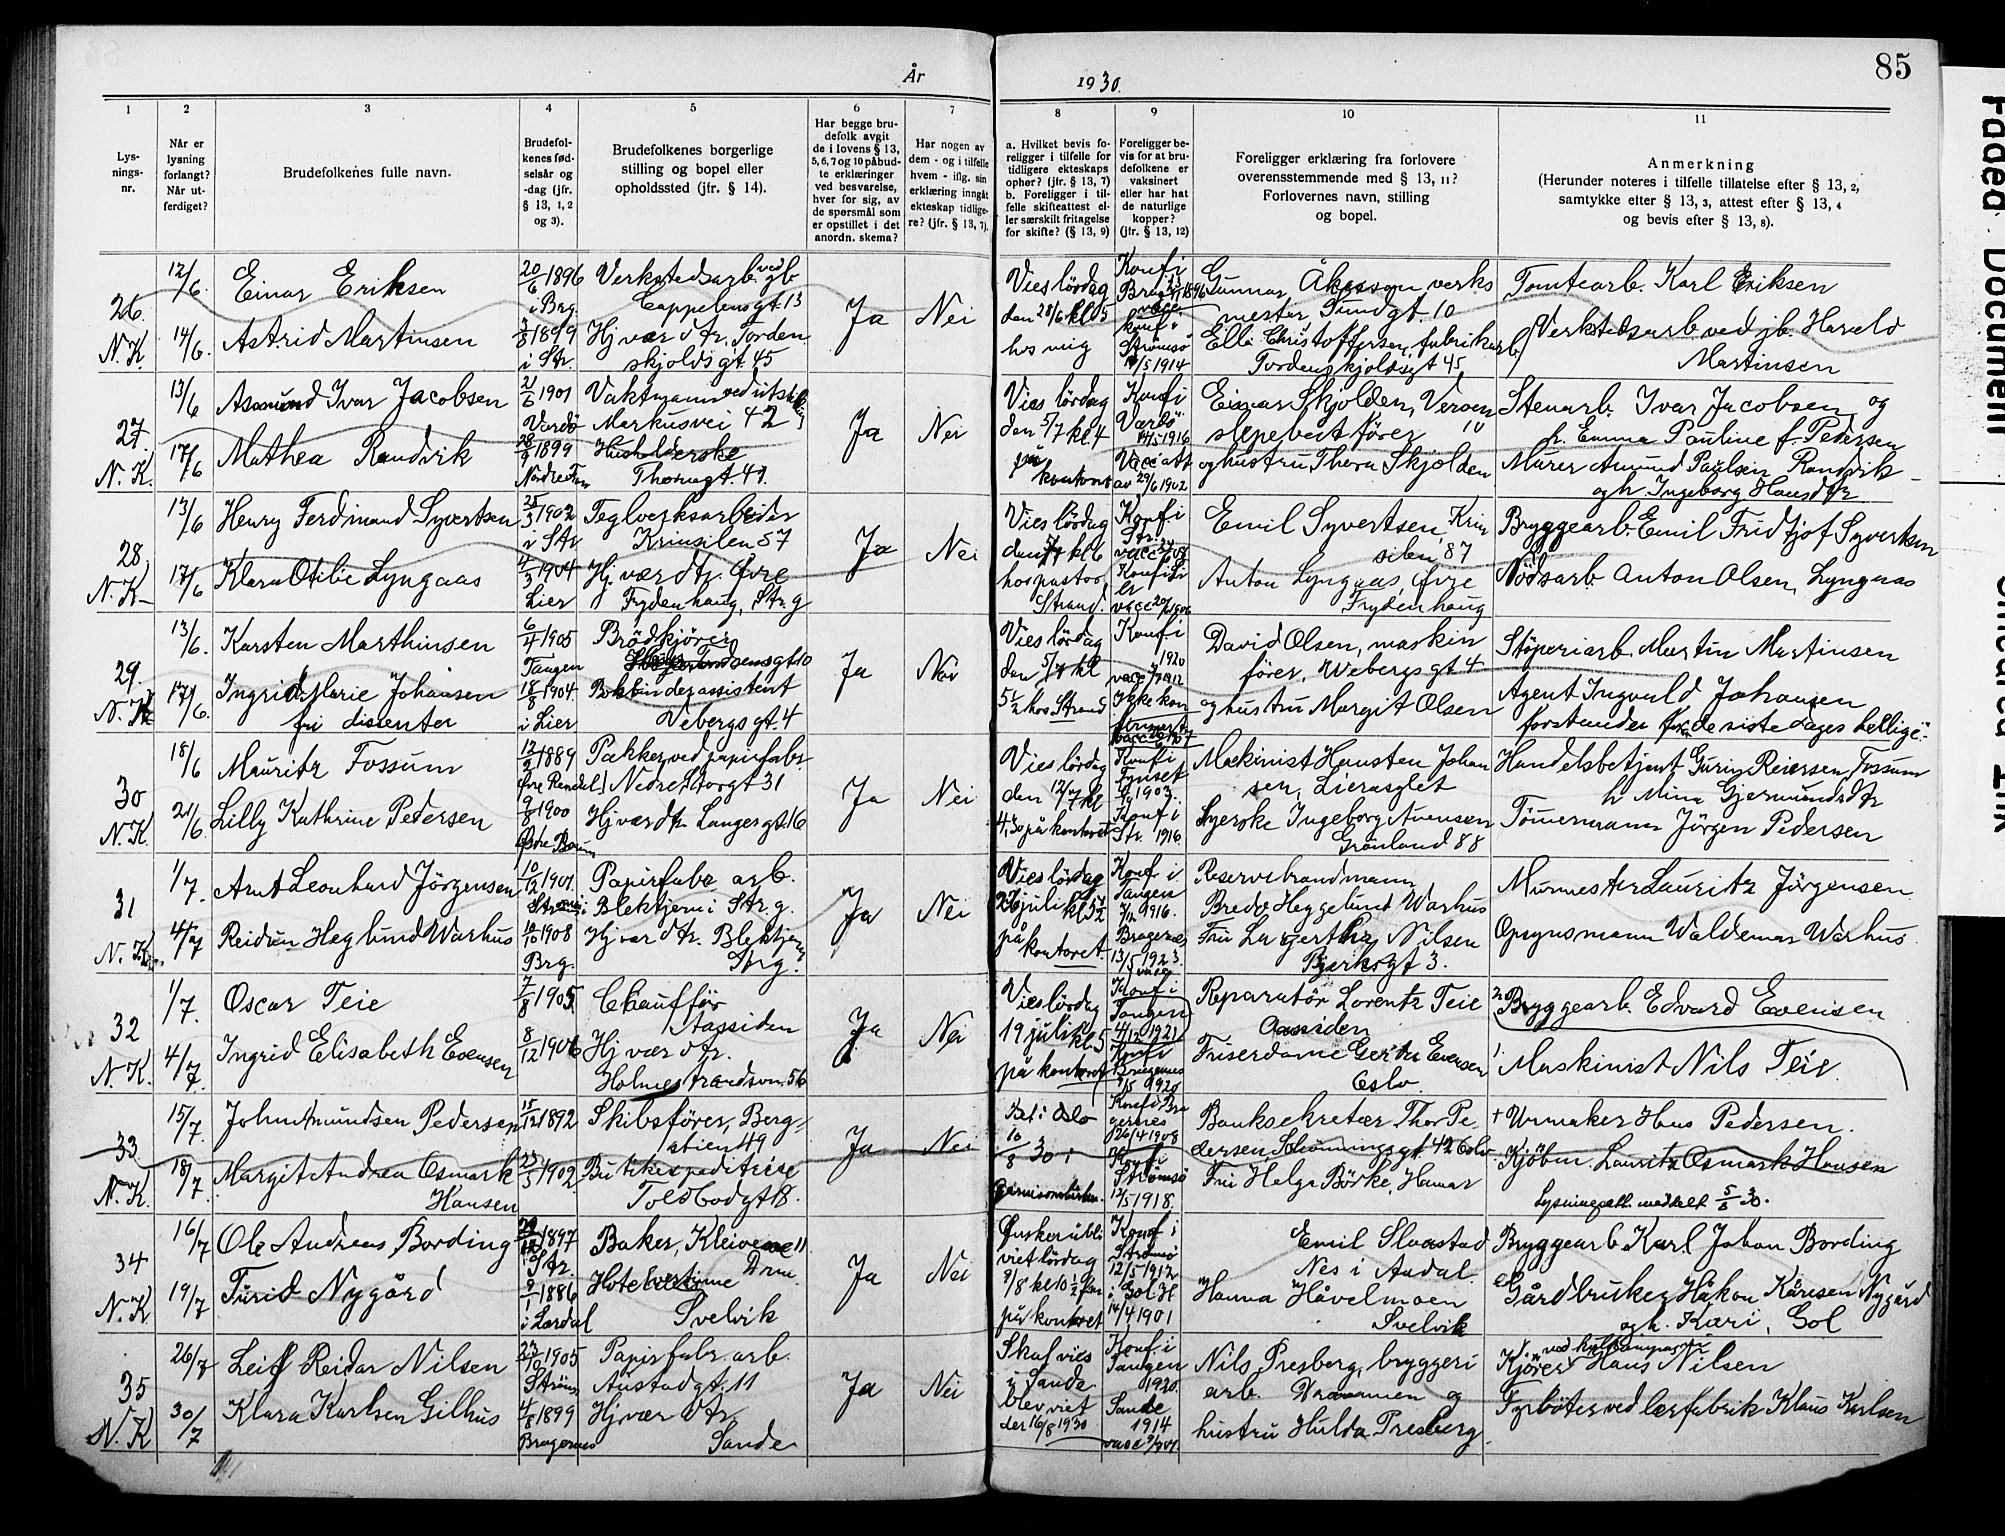 År
1930.
85
1
2
3
4
5
6
7
8
9
10
11
Lys-
nings-
nr.
Når er
lysning
forlangt?
Når ut-
ferdiget?
Brudefolkenes fulle navn.
Brudefol-
kenes fød-
selsår og
-dag (jfr.
§ 13, 1, 2
og 3).
Brudefolkenes borgerlige
stilling og bopel eller
opholdssted (jfr. § 14).
Har begge bru-
defolk avgit
de i lovens § 13,
5, 6, 7 og 10 påbud-
te erklæringer
ved besvarelse,
hver for sig, av
de spørsmål som
er opstillet i det
anordn. skema?
Har nogen av
dem - og i tilfelle
hvem - iflg. sin
erklæring inngåt
ekteskap tidlige-
re? (jfr. § 13, 7).
a. Hvilket bevis fo-
religger i tilfelle for
tidligere ekteskaps
opher? (jfr. § 13, 7)
b. Foreligger i til-
felle skifteattest el-
ler særskilt fritagelse
for skifte? (§ 13, 9)
Foreligger be-
vis for at bru-
defolkene er
vaksinert
eller har hat
de naturlige
kopper?
(jfr. § 13, 12)
Foreligger erklæring fra forlovere
overensstemmende med § 13, 11?
Forlovernes navn, stilling
og bopel.
Anmerkning
(Herunder noteres i tilfelle tillatelse efter § 13, 2,
samtykke efter § 13, 3, attest efter § 13, 4
og bevis efter § 13, 8).
26.
N.K.
12/6.
14/6.
Einar Eriksen
Astrid Martinsen
20/6 1896
i Brg.
1899
i Str.
Verkstedsarb. ved jb
Cappelensgt. 13
Hj vær dtr. Torden
skjolds gt. 45
Ja
Nei
Vies lördag
den 28/6 kl 5
hos mig
Konf i
Brag
konf i
Strømsø
1914
Gunnar Åkesson verks
mester Tundgt. 10
Elli Christoffersen, fabrikarb
Tordenskjoldsgt 45
Tomtearb. Karl Eriksen
Verkstedsarb ved jb. Harald
Martinsen
27.
N.K.
13/6
17/6
Asmund Ivar Jacobsen
Mathea Randvik
2/6 1901
Vardö
28/9 1899
Vaktmann ved
Markusvei 42
Husholderske
Thornegt. 41.
Ja
Nei
Vies lördag
den 5/7 kl. 4
på
kontoret
Konf i
1916
Vacc att
av 29/6 1902
Einar Skjolden,
og hustru Thora Skjolden
Stenarb. Ivar Jacobsen og
h. Emma Pauline f. Pedersen
Murer Amund Paulsen Randvik
og h. Ingeborg Hansdtr
28.
N.K.
13/6
17/6
Henry Ferdinand Syvertsen
Klara Otilie Lyngaas
25/3 1902
i Str
1904
Lier
Teglverksarbeider
Krinsilen 57
Hj vær dtr. Øvre
Frydenhaug, Str. g
Ja
Nei
Vies lördag
den 5/7 kl 6
hos pastor
Strand.
Konf i
Str.
Konf i Li
er
vacc 20/6 1906
Emil Syvertsen, Krin
silen 87
Anton Lyngaas, Øvre
Frydenhaug
Bryggearb. Emil Fridtjof Syvertsen
Nödsarb Anton Olsen, Lyngaas
29.
N.K
13/6.
17/6.
Karsten Marthinsen
Ingrid Marie Johansen
fri dissenter
6/4 1905
Tangen
18/8 1904.
i Lier
Brödkjörer
Bokbinderassistent
Vebergs gt. 4
Ja
Nei
Vies lördag
den 5/7 kl
5 1/2 hos Strand
Konf i
1920
Ikke kon
firmert
David Olsen, maskin
förer, Webergs gt 4
og hustru Margit Olsen
Stöperiarb. Martin Martinsen
Agent Ingvald Johansen
forstander for de siste dages hellige.
30
N.K.
18/6
21/6.
Mauritz Fossum
Lilly Kathrine Pedersen
12/2 1889
Øvre Rendal
9/8 1900
Østre Bærum
Pakker ved papirfabr.
Nedre Storgt 31
Hj vær dtr. Langes gt. 16
Ja
Nei
Vies lördag
den 12/7 kl
4,30 på kontoret
Konf i
Tynset
1903.
Konf i
Str. 1916.
Maskinist Hansten Johan
sen, Lierasylet
Syerske Ingeborg Svensen
Grönland 88
Handelsbetjent Gurin Reiersen Fossum
h Mina Gjermundsdtr
Tömermann Jörgen Pedersen
31
N.K.
1/7.
4/7
Arnt Leonhard Jörgensen
Reidun Heglund Warhus
10/12 1901.
Strømsø
10/10 1908
Brg.
Papirfabr arb.
Blektjern i Str. g.
Hj vær dtr. Blektjern
Str. g.
Ja
Nei
Vies lördag
26 juli kl 5 1/2
på
kontoret.
Konf i
Tangen
1916.
Bragernes
13/5 1923.
Reservebrandmann
Brede Heggelund Warhus
Fru Lagertha Nilsen
Bjerksgt 3.
Murmester Lauritz Jörgensen
Opsynsmann Waldemar Warhus.
32
N.K.
1/7.
4/7.
Oscar Teie
Ingrid Elisabeth Evensen
7/8 1905.
8/12 1906
Chauffør
Aassiden
Hj vær dtr.
Holmestrandsvn. 56
Ja
Nei
Vies lördag
19 juli kl 5
på kontoret
Konf i
Tangen
4/12 1921
Konf i
Bragernes
1920
Reparatör Lorentz Teie
Aassiden
Friserdame Gerta Evensen
Oslo
2 Bryggearb. Edvard Evensen
1. Maskinist Nils Teie
33.
N.K.
15/7.
18/7.
John Amundsen Pedersen
Margit Andrea Osmark
Hansen
15/12 1892
23/5 1902
Skibsförer, Berg-
stien 49
Butikexpeditrise
Toldbodgt 18.
Ja
Nei
Bet i Oslo
10/8 30 i
Garnisonskirken
Konf i Bra
gernes
26/4 1908
Konf i
Strömsö
12/5 1918.
Banksekretær Thor Pe-
dersen Schönningsgt. 42 Oslo
Fru Helga Börke, Hamar
+ Urmaker Hans Pedersen.
Kjöbm. Lauritz Osmark Hansen
Lysningsatt. meddelt 5/8 30.
34
N.K
16/7
19/7
Ole Andreas Bording
Turid Nygård
1897
Str.
9/1 1886
i Lærdal
Baker, Kleivene 11
Drm.
Hotelvertinne
Svelvik
Ja
Nei
Ønsker å bli
viet lördag
9/8 kl 10 1/2 fm
på kontoret
Konf i
Strömsö
12/5 1912
i Gol H
14/4 1901
Emil Slaastad
Nes i Aadal.
Hanna Håvelmoen
Svelvik
Bryggearb Karl Johan Bording
Gårdbruker Håkon Kåresen Nygård
og h. Kari, Gol
35
N.K
26/7
30/7
Leif Reidar Nilsen
Klara Karlsen Gilhus
23/10 1905
Strøms
4/8 1899
Bragernes
Papirfabr. arb.
Austadgt. 11
Hj vær dtr
Sande
Ja
Nei
Skal vies
i Sande
blev viet
der 16/8 1930
Konf i
Tangen
1920.
Sande
1914
Nils Presberg, bryggeri
arb. Drammen og
hustru Hulda Presberg.
Kjörer Hans Nilsen
Fyrböter ved lærfabrik Klaus Karlsen
Faded Document